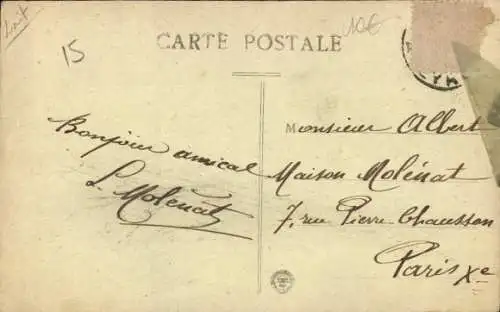 Lait
15
10€
CARTE POSTALE
Bonjour amical
L. Molénat
Monsieur Albert
Maison Molénat
7, rue Pierre Chausson
Paris Xe